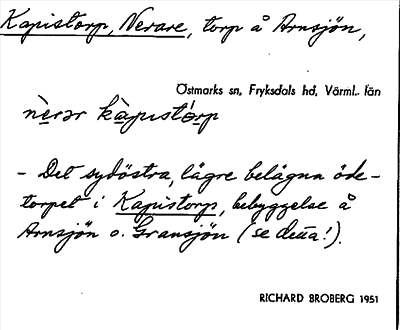 Kapistorp, Nerare, torp å Arnsjön,
Östmarks sn, Fryksdals hd, Värml. län
nèrər kàpistórp
- Det sydöstra, lägre belägna öde-
torpet i Kapistorp, bebyggelse å
Arnsjön o. Gransjön (se detta!).
RICHARD BROBERG 1951